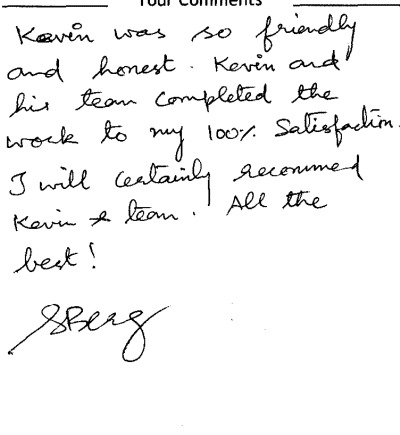 Your Comments
Kevin was so friendly
and honest. Kevin and
his team completed the
work to my 100% Satisfaction.
I will certainly recommed
Kevin & team. All the
best!
SBerg